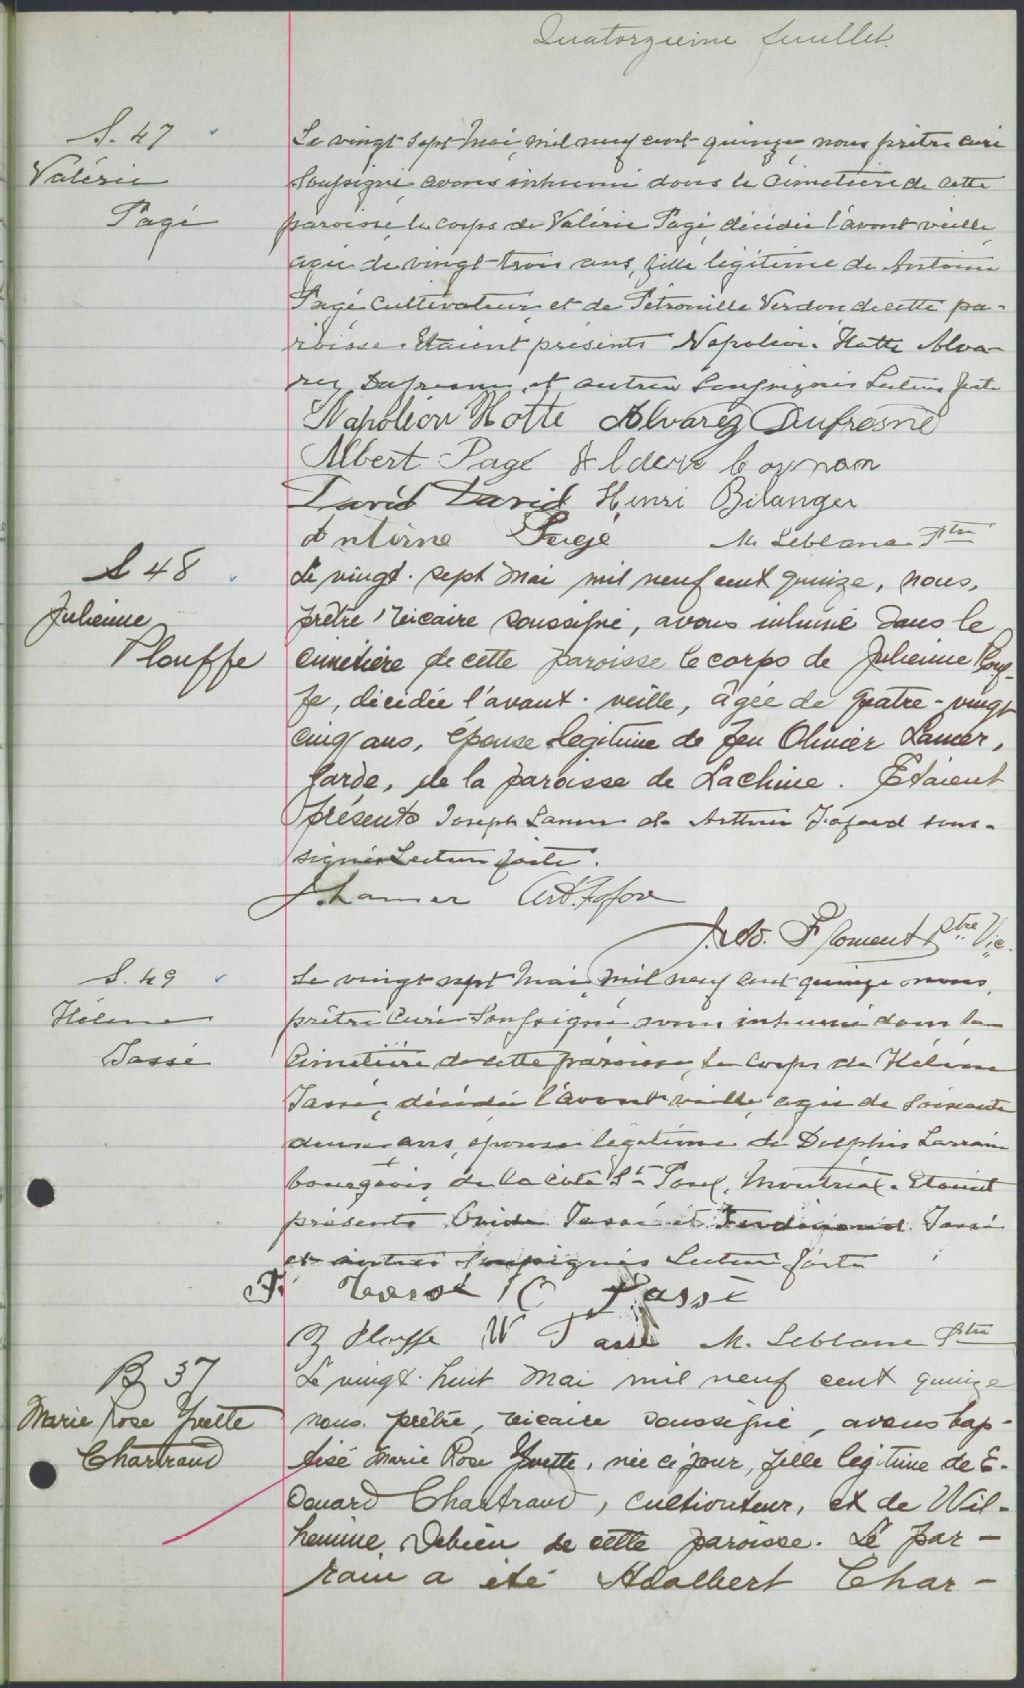 Quatorzième feuillet.
S. 47
Valérie
Pagé
Le vingt sept Mai, mil neuf cent quinze nous prêtre curé
soussigné avons inhumé dans le cimetière de cette
paroisse le corps de Valérie Pagé décédée l'avant veille,
agée de vingt-trois ans, fille légitime de Antoine
Pagé cultivateur et de Pétronille Verdon de cette pa-
roisse. Etaient présents Napoléon Hotte Alva-
rez Dufresne et autres soussignés Lecture faite
Napoléon Hotte Alvarez Dufresne
Albert Pagé
David David Henri Bélanger
Antoine Pagé M. Leblanc Ptre
S 48
Julienne
Plouffe
Le vingt-sept mai mil neuf cent quinze, nous,
prêtre vicaire soussigné, avons inhumé dans le
cimetière de cette paroisse le corps de Julienne Plouf-
fe, décédée l'avant-veille, âgée de quatre-vingt
cinq ans, épouse légitime de feu Olivier Lamer,
garde, de la paroisse de Lachine. Etaient
présents Joseph Lamer & Arthur Fafard sous-
signés Lecture faite.
J. Lamer Art. Fafar
Froment Ptre Vic.
S. 49
Hélène
Tassé
Le vingt sept Mai, mil neuf cent quinze nous,
prêtre curé soussigné avons inhumé dans le
cimetière de cette paroisse, le corps de Hélène
Tassé, décédée l'avant veille, agée de soixante
deux ans, épouse légitime de Delphis Larrain
bourgeois de la côte St Paul, Montréal. Etaient
présents Ovide Tassé et Ferdinand Tassé
et autres soussignés Lecture faite
F. Tassé C Tassé
Z Plouffe W Tassé M. Leblanc Ptre
B 37
Marie Rose Yvette
Chartrand
Le vingt-huit mai mil neuf cent quinze
nous prêtre, vicaire soussigné, avons bap-
tisé Marie Rose Yvette, née ce jour, fille légitime de E-
douard Chartrand, cultivateur, et de Wil-
hemine Debien de cette paroisse. Le par-
rain a été Adalbert Char-